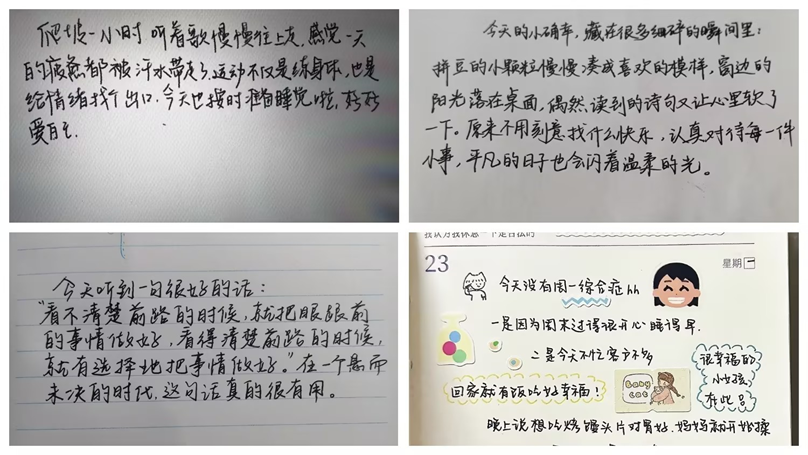 爬坡一小时 听着歌慢慢往上走,感觉一天
的疲惫都被汗水带走了.运动不仅是练身体,也是
给情绪找个出口.今天也按时准备睡觉啦,好好
爱自己.
今天的小确幸,藏在很多细碎的瞬间里:
拼豆的小颗粒慢慢凑成喜欢的模样,窗边的
阳光落在桌面,偶然读到的诗句又让心里软了
一下。原来不用刻意找什么快乐,认真对待每一件
小事,平凡的日子也会闪着温柔的光。
今天听到一句很好的话:
“看不清楚前路的时候,就把眼跟前
的事情做好,看得清楚前路的时候,
就有选择地把事情做好。”在一个悬而
未决的时代,这句话真的很有用。
我认为我休息一下是合法的
23
星期一
今天没有周一综合症hh
一是因为周末过得很开心睡得早.
二是今天不忙客户不多
很幸福的
小女孩
在此
回家就有饭吃好幸福!
Baby
cat
晚上说想吃烤馒头片对胃好.妈妈就开始揉